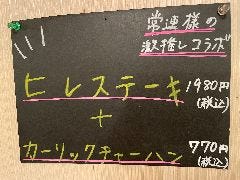 常連様の
激推しコラボ
ヒレステーキ 1980円
(税込)
＋
ガーリックチャーハン 770円
(税込)